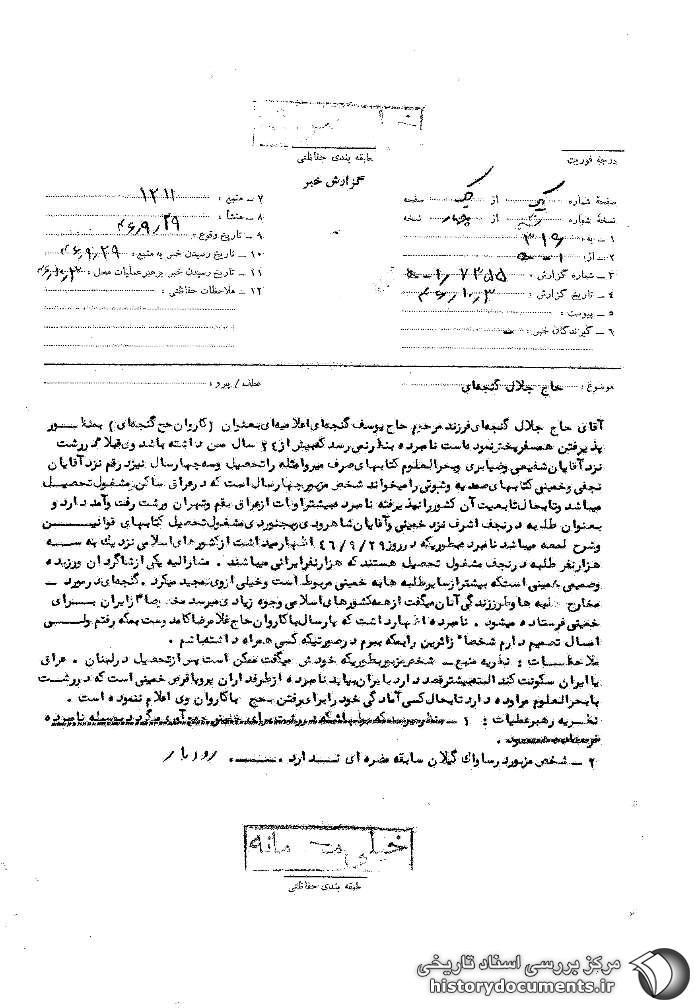 طبقه بندی حفاظتی
گزارش خبر
درجه فوریت
صفحه شماره یک از یک صفحه
نسخه شماره از چهار نسخه
۱ ـ به: ۳۱۶
۲ ـ از:
۳ ـ شماره گزارش:
۴ ـ تاریخ گزارش: ۴۶٫۱۰٫۳
۵ ـ پیوست:
۶ ـ گیرندگان خبر:
۷ ـ منبع: ۱۲۱۱
۸ ـ منشأ:
۹ ـ تاریخ وقوع: ۴۶٫۹٫۲۹
۱۰ ـ تاریخ رسیدن خبر به منبع: ۴۶٫۹٫۲۹
۱۱ ـ تاریخ رسیدن خبر برهبر عملیات محل:
۱۲ ـ ملاحظات حفاظتی:
موضوع: حاج جلال گنجه‌ای
عطف / پیرو:
آقای حاج جلال گنجه‌ای فرزند مرحوم حاج یوسف گنجه‌ای اعلامیه‌ای بعنوان (کاروان حج گنجه‌ای) بمنظور
پذیرفتن همسفر پخش نموده است نامبرده بنظر نمیرسد که بیش از ۲۴ سال سن داشته باشد وی قبلا در رشت
نزد آقایان شفیعی وضیابری وبحرالعلوم کتابهای صرف میر وامثله را تحصیل وسه چهار سال نیز در قم نزد آقایان
نجفی وخمینی کتابهای صمدیه وسیوطی را میخواند شخص مزبور چهار سال است که در عراق ساکن ومشغول تحصیل
میباشد وتابحال تابعیت آن کشور را نپذیرفته نامبرده بیشتر اوقات از عراق بقم وتهران ورشت رفت وآمد دارد و
بعنوان طلبه در نجف اشرف نزد خمینی وآقایان شاهرودی وبجنوردی مشغول تحصیل کتابهای قوانین
وشرح لمعه میباشد نامبرده بطوریکه در روز ۴۶/۹/۲۹ اظهار میداشت از کشورهای اسلامی نزدیک به سه
هزار نفر طلبه در نجف مشغول تحصیل هستند که هزار نفر ایرانی میباشند. مشارالیه یکی از شاگردان ورزیده
وصمیمی خمینی است که بیشتر از سایر طلبه ها به خمینی مربوط است وخیلی از وی تمجید میکرد. گنجه‌ای در مورد ـ
مخارج طلبه ها وطرز زندگی آنان میگفت از همه کشورهای اسلامی وجوه زیادی میرسد مخصوصا" از ایران برای
خمینی فرستاده میشود. نامبرده اظهار داشت که پارسال با کاروان حاج غلامرضا کامدوست بمکه رفتم ولی
امسال تصمیم دارم شخصا" زائرین را بمکه ببرم در صورتیکه کسی همراه داشته باشم.
ملاحظات: نظریه منبع ـ شخص مزبور بطوریکه خودش میگفت ممکن است پس از تحصیل در لبنان. عراق
یا ایران سکونت کند البته بیشتر قصد دارد بایران بیاید نامبرده از طرفداران پروپاقرص خمینی است که در رشت
با بحرالعلوم مراوده دارد تابحال کسی آمادگی خود را برای رفتن بحج با کاروان وی اعلام ننموده است.
نظریه رهبر عملیات: ۱ ـ
۲ ـ شخص مزبور در ساواک گیلان سابقه مضره ای ندارد.
خیلی محرمانه
طبقه بندی حفاظتی
مرکز بررسی اسناد تاریخی
historydocuments.ir